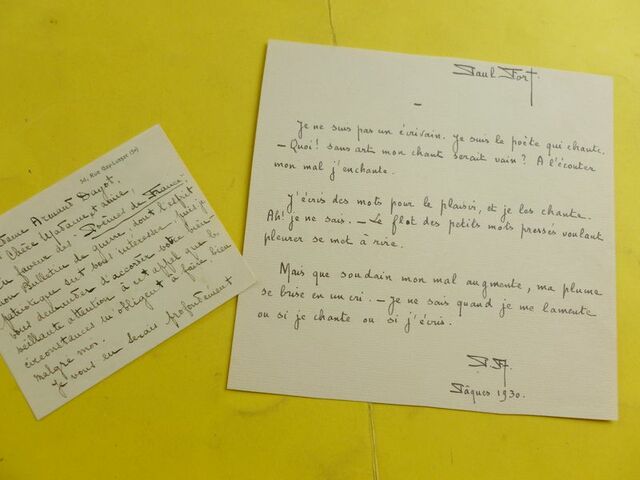 34, Rue Gay-Lussac (5e)
Madame Armand Dayot,
Chère Madame, et amie,
en faveur des Poèmes de France,
mon Bulletin de guerre, dont l'esprit
patriotique sut vous intéresser, puis-je
vous demander d'accorder votre bien-
veillante attention à cet appel que les
circonstances m'obligent à faire bien
malgré moi.
Je vous en serais profondément
Paul Fort
–
Je ne suis pas un écrivain. Je suis le poète qui chante.
– Quoi! sans art mon chant serait vain? A l'écouter
mon mal j'enchante.
J'écris des mots pour le plaisir, et je les chante.
Ah! je ne sais. – Le flot des petits mots pressés voulant
pleurer se mot à rire.
Mais que soudain mon mal augmente, ma plume
se brise en un cri. – Je ne sais quand je me lamente
ou si je chante ou si j'écris.
P. F.
Pâques 1930.